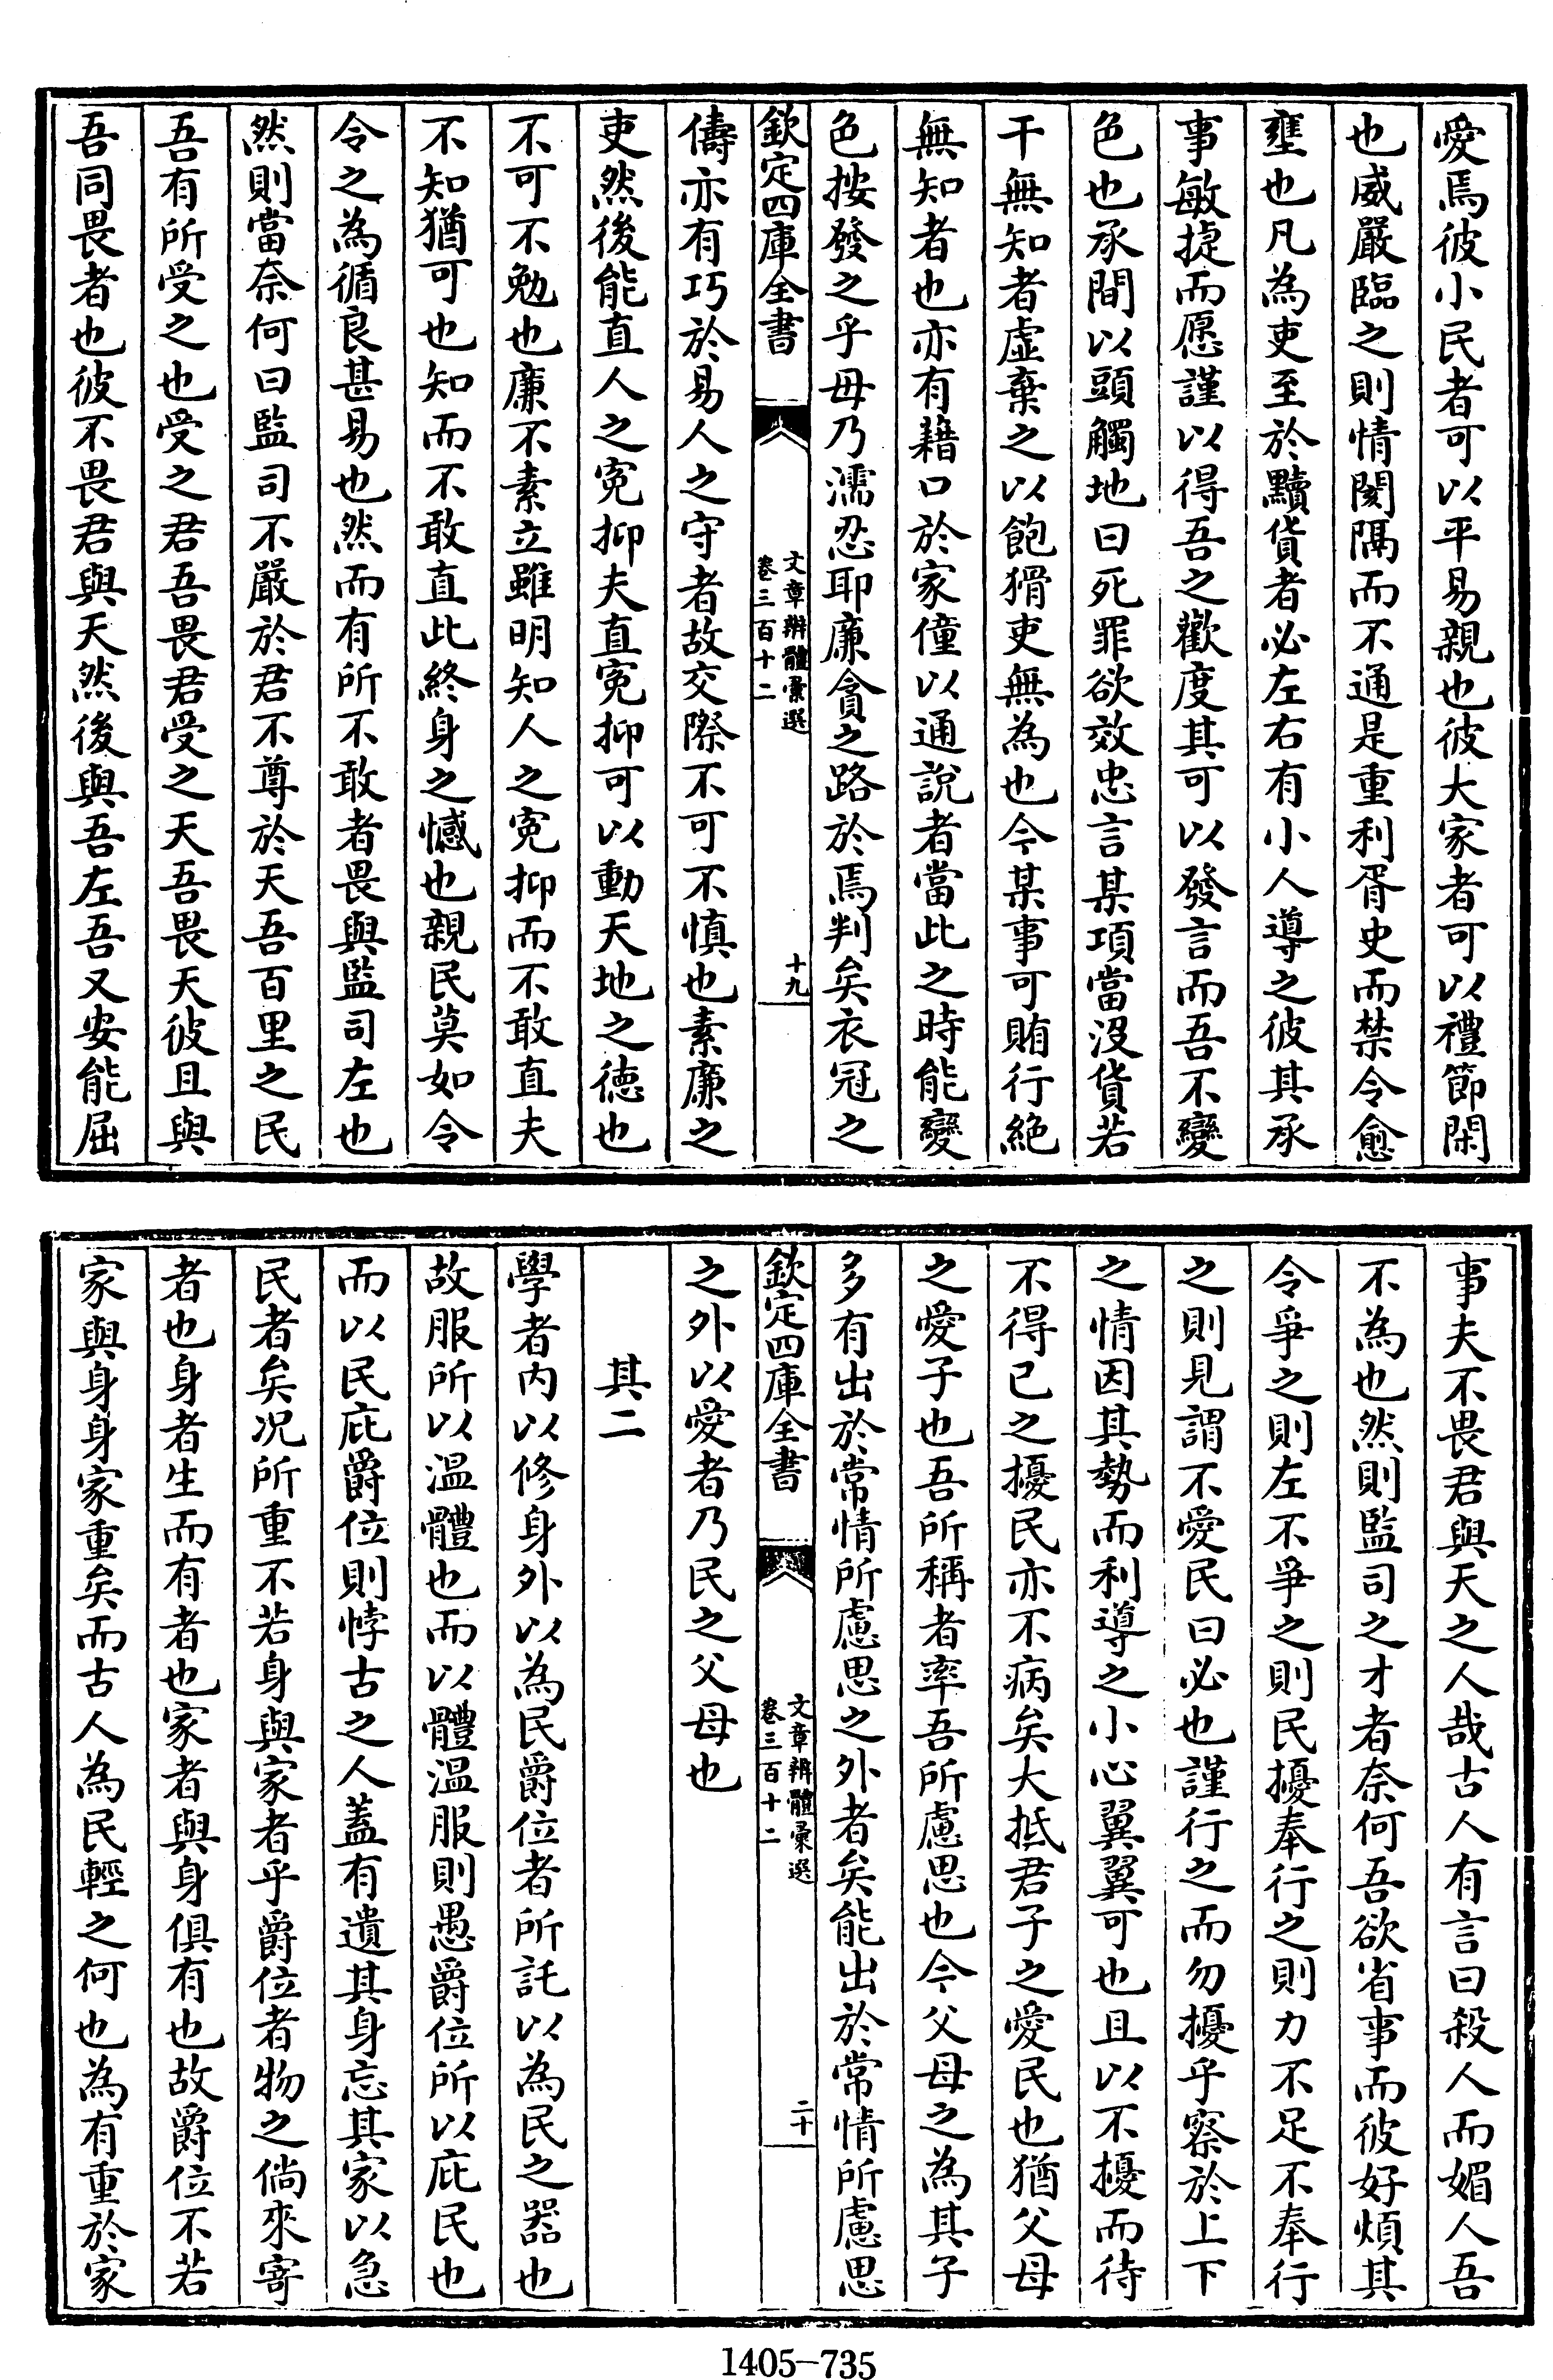 愛焉彼小民者可以平易親也彼大家者可以禮節閑
也威嚴臨之則情閡隔而不通是重利胥史而禁令愈
壅也凡為吏至於黷貨者必左右有小人導之彼其承
事敏捷而愿謹以得吾之歡度其可以發言而吾不變
色也承間以頭觸地曰死罪欲效忠言某項當沒貨若
干無知者虛棄之以飽猾吏無為也今某事可賄行絕
無知者也亦有藉口於家僮以通說者當此之時能變
色按發之乎毋乃濡忍耶廉貪之路於焉判矣衣冠之
欽定四庫全書
文章辨體彙選
卷三百十二
十九
儔亦有巧於易人之守者故交際不可不慎也素廉之
吏然後能直人之寃抑夫直寃抑可以動天地之德也
不可不勉也廉不素立雖明知人之寃抑而不敢直夫
不知猶可也知而不敢直此終身之憾也親民莫如令
令之為循良甚易也然而有所不敢者畏與監司左也
然則當奈何曰監司不嚴於君不尊於天吾百里之民
吾有所受之也受之君吾畏君受之天吾畏天彼且與
吾同畏者也彼不畏君與天然後與吾左吾又安能屈
事夫不畏君與天之人哉古人有言曰殺人而媚人吾
不為也然則監司之才者奈何吾欲省事而彼好煩其
令爭之則左不爭之則民擾奉行之則力不足不奉行
之則見謂不愛民曰必也謹行之而勿擾乎察於上下
之情因其勢而利導之小心翼翼可也且以不擾而待
不得已之擾民亦不病矣大抵君子之愛民也猶父母
之愛子也吾所稱者率吾所慮思也今父母之為其子
多有出於常情所慮思之外者矣能出於常情所慮思
欽定四庫全書
文章辨體彙選
卷三百十二
二十
之外以愛者乃民之父母也
其二
學者内以修身外以為民爵位者所託以為民之器也
故服所以溫體也而以體溫服則愚爵位所以庇民也
而以民庇爵位則悖古之人蓋有遺其身忘其家以急
民者矣况所重不若身與家者乎爵位者物之倘來寄
者也身者生而有者也家者與身俱有也故爵位不若
家與身身家重矣而古人為民輕之何也為有重於家
1405—735